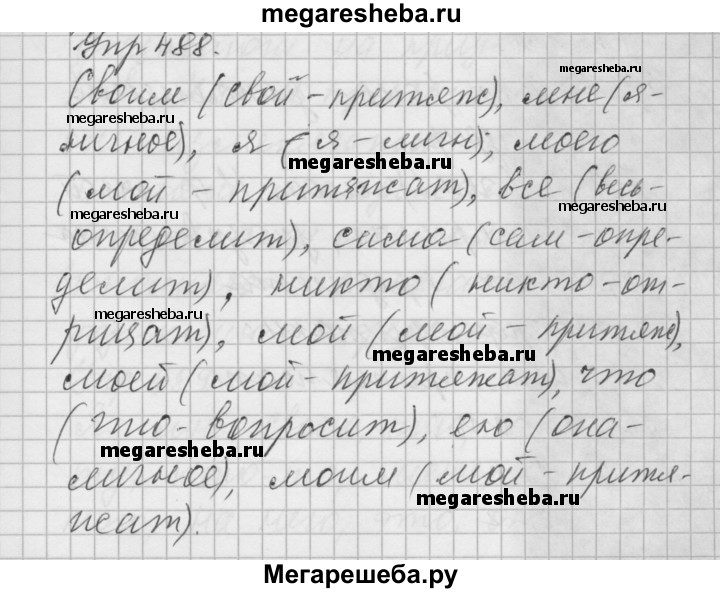 megaresheba.ru
Упр 488.
Своим (свой - притяж), мне (я -
megaresheba.ru
megaresheba.ru
личное), я (я - личн); моего
megaresheba.ru
(мой - притяжат), все (весь -
megaresheba.ru
megaresheba.ru
определит), сама (сам - опре-
делит), никто (никто - от-
megaresheba.ru
рицат), мой (мой - притяж),
megaresheba.ru
моей (мой - притяжат), что
(что - вопросит), ею (она -
megaresheba.ru
личное), моим (мой - притя-
megaresheba.ru
жат).
Мегарешеба.ру